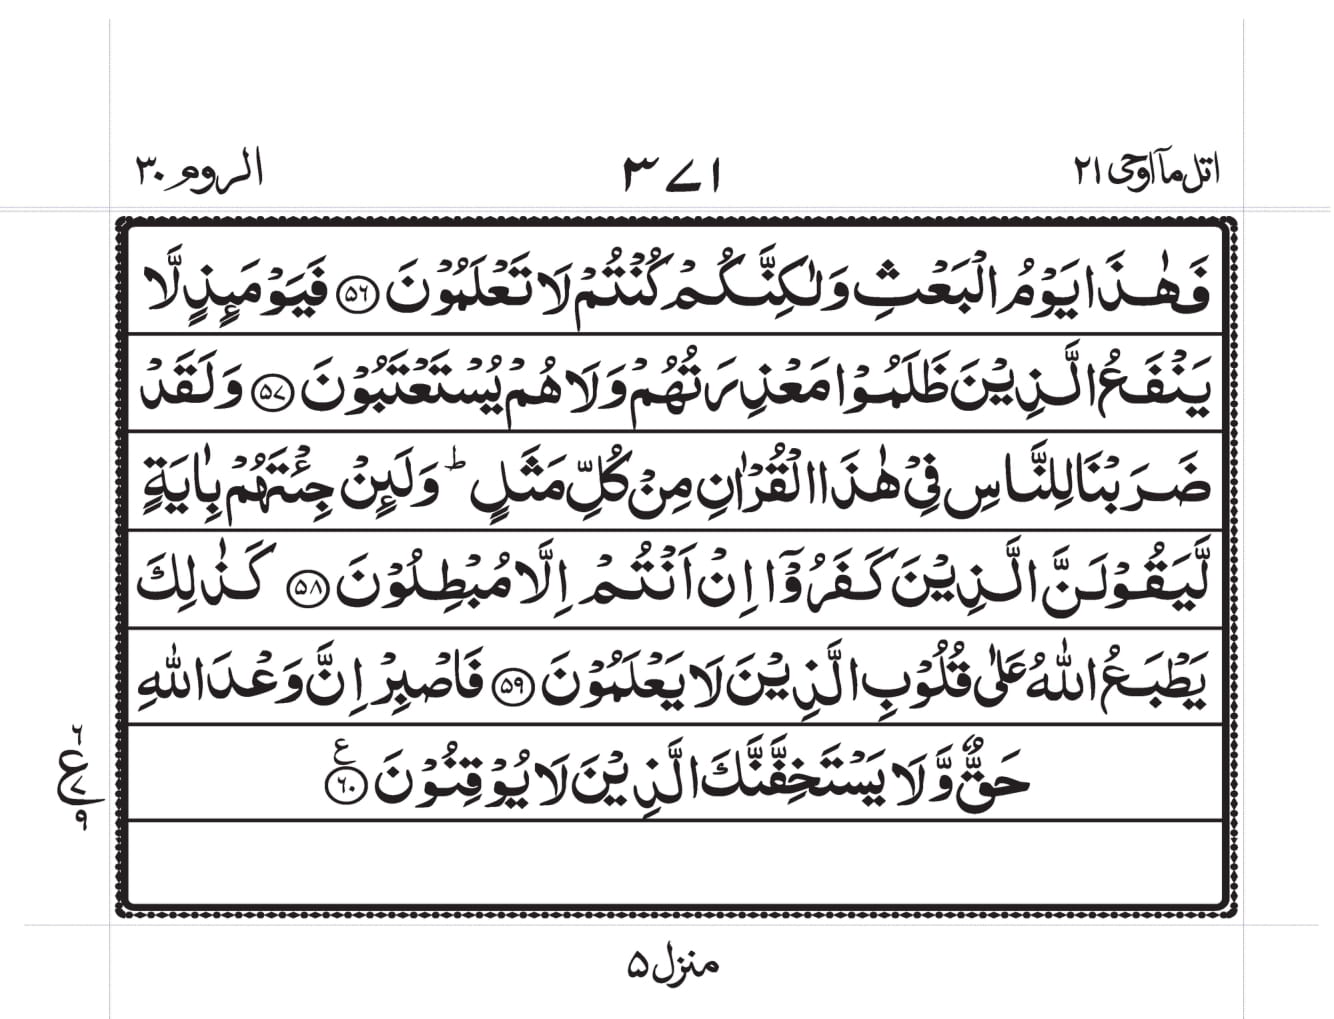 اتل مآ اوحی ۲۱ ۳۷۱ الروم ۳۰
فَهٰذَا يَوْمُ الْبَعْثِ وَلٰكِنَّكُمْ كُنْتُمْ لَا تَعْلَمُوْنَ ۵۶ فَيَوْمَئِذٍ لَّا
يَنْفَعُ الَّذِيْنَ ظَلَمُوْا مَعْذِرَتُهُمْ وَلَا هُمْ يُسْتَعْتَبُوْنَ ۵۷ وَلَقَدْ
ضَرَبْنَا لِلنَّاسِ فِيْ هٰذَا الْقُرْاٰنِ مِنْ كُلِّ مَثَلٍ ؕ وَلَئِنْ جِئْتَهُمْ بِاٰيَةٍ
لَّيَقُوْلَنَّ الَّذِيْنَ كَفَرُوْٓا اِنْ اَنْتُمْ اِلَّا مُبْطِلُوْنَ ۵۸ كَذٰلِكَ
يَطْبَعُ اللّٰهُ عَلٰى قُلُوْبِ الَّذِيْنَ لَا يَعْلَمُوْنَ ۵۹ فَاصْبِرْ اِنَّ وَعْدَ اللّٰهِ
حَقٌّ وَّلَا يَسْتَخِفَّنَّكَ الَّذِيْنَ لَا يُوْقِنُوْنَ ۶۰ ع
۶
ع ۷
۹
منزل ۵